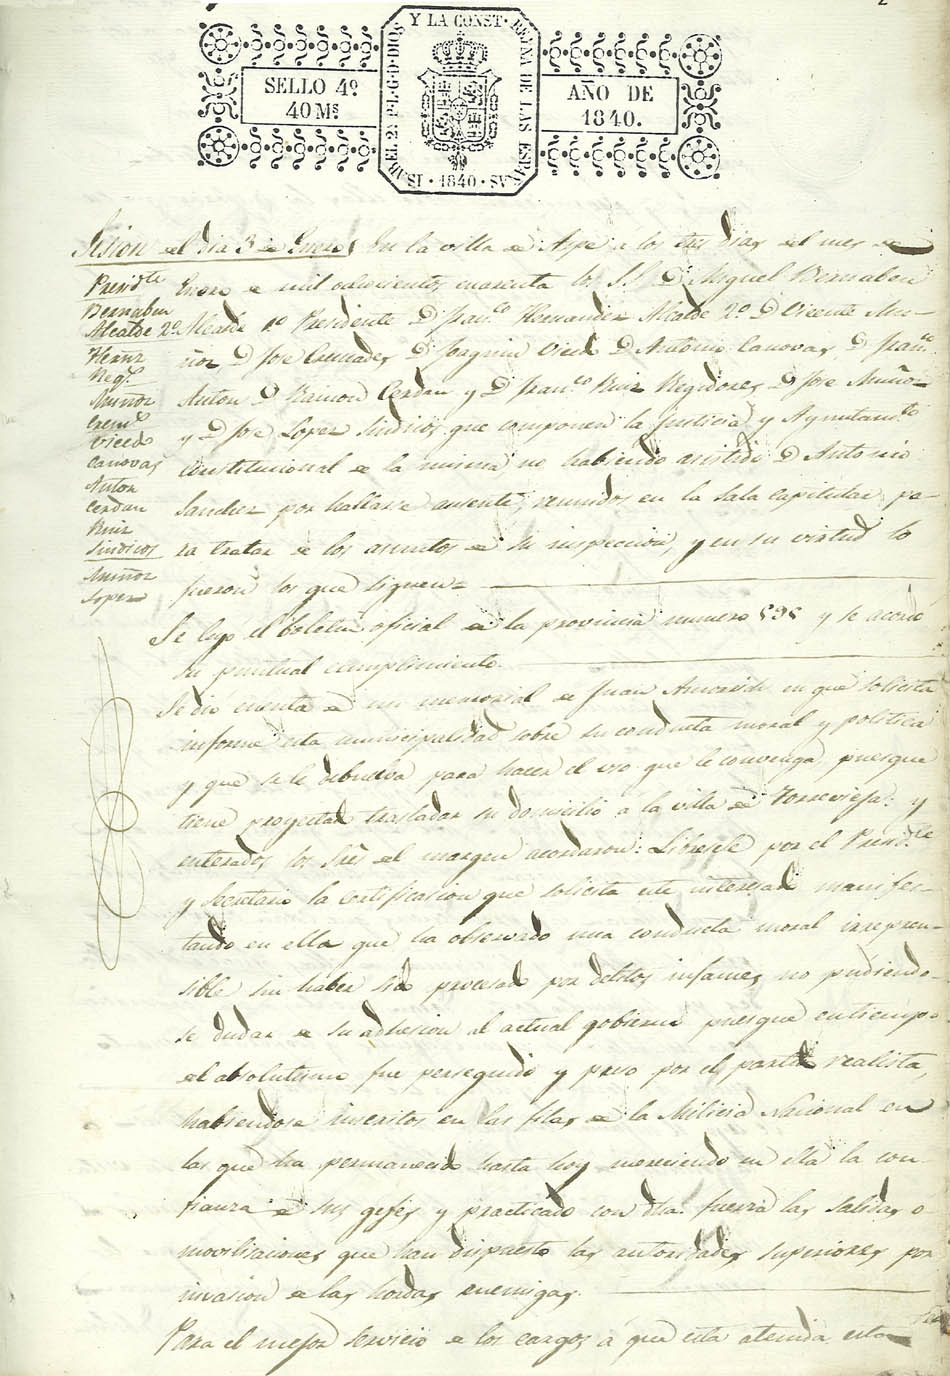 2
ISABEL 2.ª P. L. G. D. DIOS Y LA CONST. REINA DE LAS ESPAÑAS
SELLO 4º
40 Ms.
AÑO DE
1840.
· 1840 ·
Sesion del dia 3 de Enero
En la villa de Aspe a los tres dias del mes de
Enero de mil ochocientos cuarenta los S.S. D. Miguel Bernabeu
Alcalde 1º Presidente D. Fran.co Hernandez Alcalde 2º D. Vicente Mu-
ñoz D. Jose Cremades D. Joaquin Vicedo D. Antonio Canovas D. Fran.co
Anton D. Ramon Cerdan y D. Fran.co Ruiz Regidores D. Jose Muñoz
y D. Jose Lopez Sindicos que componen la Justicia y Ayuntam.to
constitucional de la misma no habiendo asistido D. Antonio
Sanchez por hallarse ausente, reunidos en la Sala Capitular pa-
ra tratar de los asuntos de su inspeccion, y en su virtud lo
fueron los que siguen=
Presid.te
Bernabeu
Alcalde 2º
Hernz
Reg.s
Muñoz
Crem.s
Vicedo
Canovas
Anton
Cerdan
Ruiz
Sindicos
Muñoz
Lopez
Se leyó el boletin oficial de la provincia numero 595 y se acordó
su puntual cumplimiento.
Se dio cuenta de un memorial de Juan en que solicita
informe esta municipalidad sobre su conducta moral y politica
y que se le debuelva para hacer el uso que le convenga, puesque
tiene proyectado trasladar su domicilio a la villa de Torrevieja: y
enterados los Sres del margen acordaron: Librese por el Presid.te
y Secretario la certificacion que solicita este interesado manifes-
tando en ella que ha observado una conducta moral irrepren-
sible sin haber sido procesado por delitos infames, no pudiendo-
se dudar de su adhesion al actual gobierno puesque en tiempo
del absolutismo fue perseguido y preso por el partido realista,
habiendose inscritos en las filas de la Milicia Nacional en
las que ha permanecido hasta hoy mereciendo en ella la con-
fianza de sus gefes y practicado con dha. fuerza las salidas o
moviliaciones que han dispuesto las autoridades superiores por
invasion de las hordas enemigas.
Para el mejor servicio de los cargos a que esta atenida esta